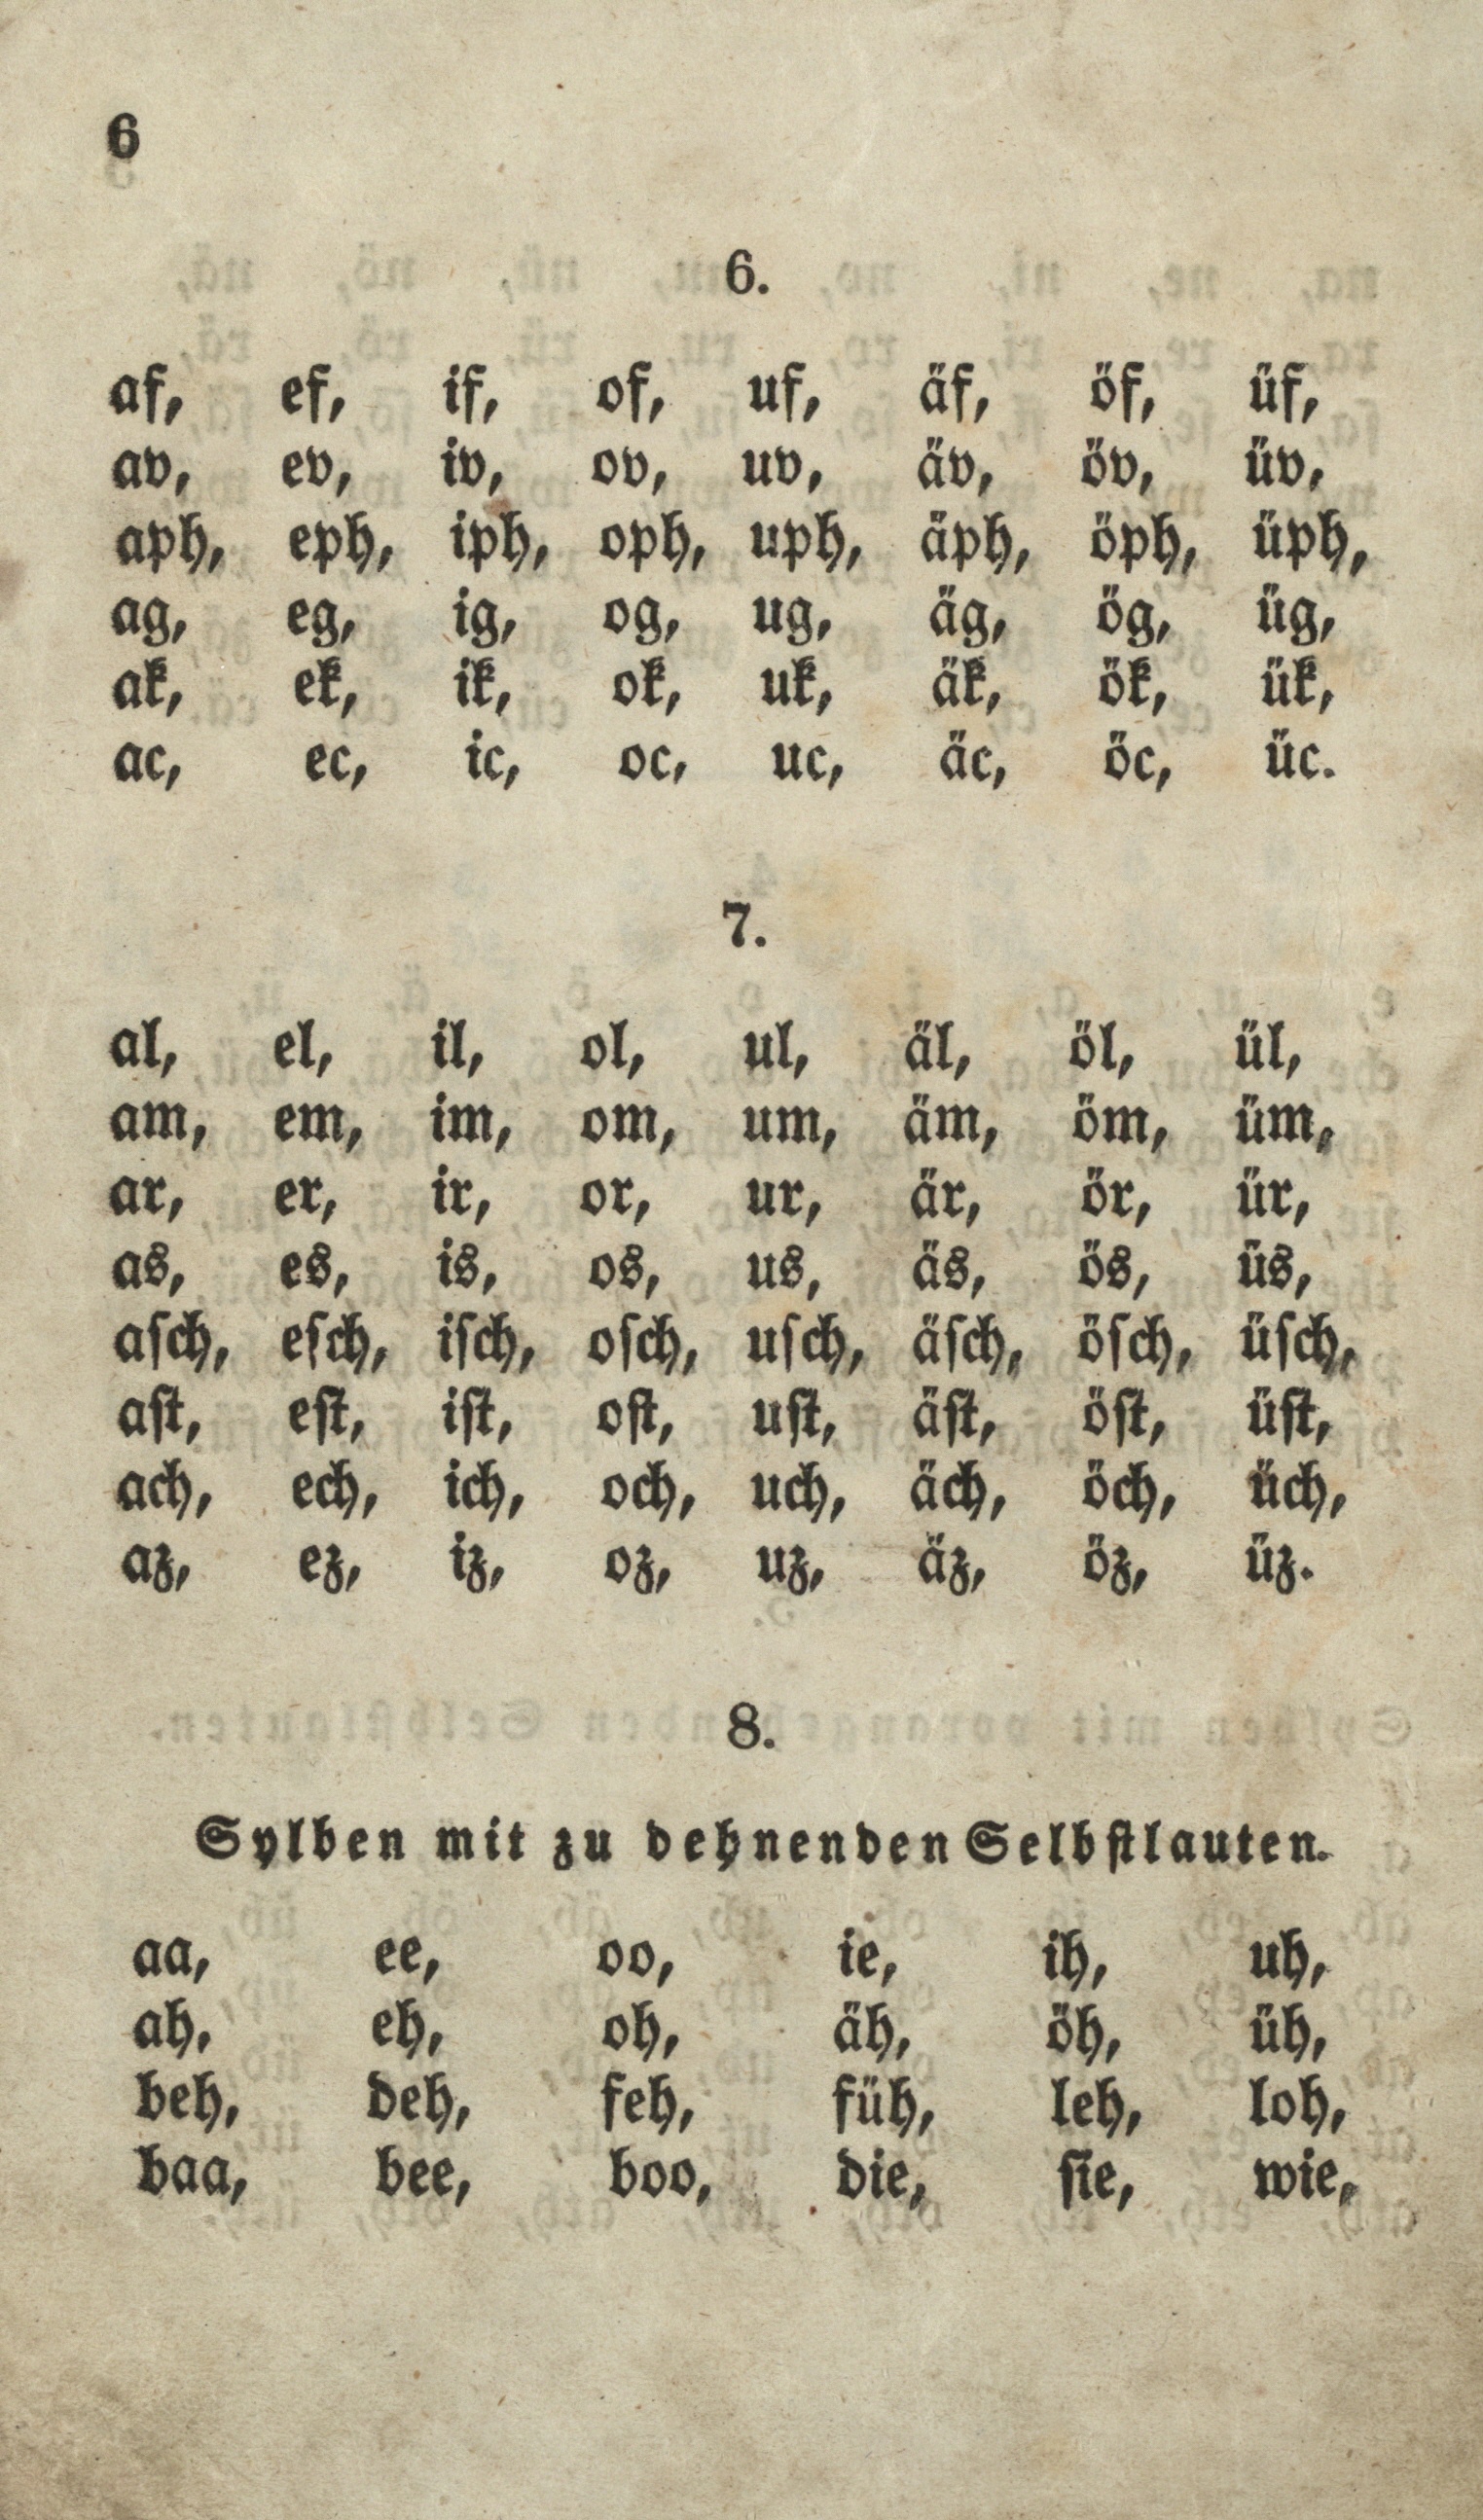 6
6.
af, ef, if, of, uf, äf, öf, üf,
av, ev, iv, ov, uv, äv, öv, üv,
aph, eph, iph, oph, uph, äph, öph, üph,
ag, eg, ig, og, ug, äg, ög, üg,
ak, ek, ik, ok, uk, äk, ök, ük,
ac, ec, ic, oc, uc, äc, öc, üc.
7.
al, el, il, ol, ul, äl, öl, ül,
am, em, im, om, um, äm, öm, üm,
ar, er, ir, or, ur, är, ör, ür,
as, es, is, os, us, äs, ös, üs,
aſch, eſch, iſch, oſch, uſch, äſch, öſch, üſch,
aſt, eſt, iſt, oſt, uſt, äſt, öſt, üſt,
ach, ech, ich, och, uch, äch, öch, üch,
az, ez, iz, oz, uz, äz, öz, üz.
8.
Sylben mit zu dehnenden Selbſtlauten.
aa, ee, oo, ie, ih, uh,
ah, eh, oh, äh, öh, üh,
beh, deh, feh, füh, leh, loh,
baa, bee, boo, die, ſie, wie,